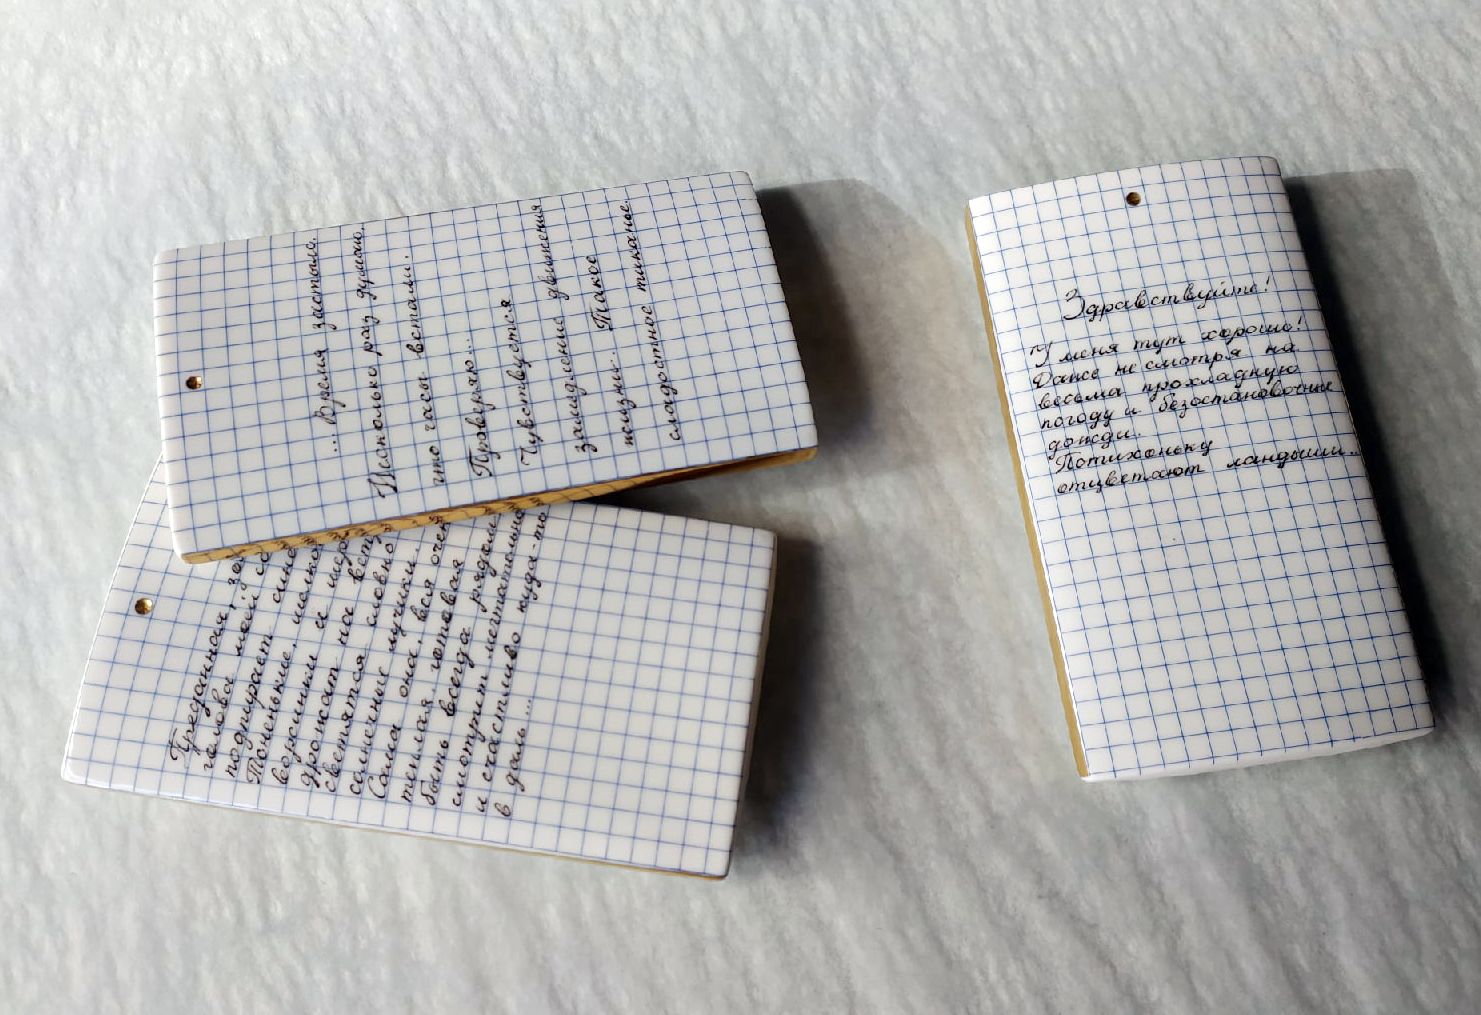 ... Время застыло.
Несколько раз думаю.
что часы встали.
Проверяю...
Чувствуется
замедление движения
жизни... Такое
сладостное тиканье.
Преданная,
голова моей
подпирает
Тоненькие,
ворсинки и
дрожат на
светятся словно
солнечные лучики.
Сама она, вся очень
теплая, готовая
быть всегда рядом
смотрит мечтательно
и счастливо куда-то
в даль...
Здравствуйте!
У меня тут хорошо!
Даже не смотря на
весьма прохладную
погоду и безостановочные
дожди.
Потихоньку
отцветают ландыши..